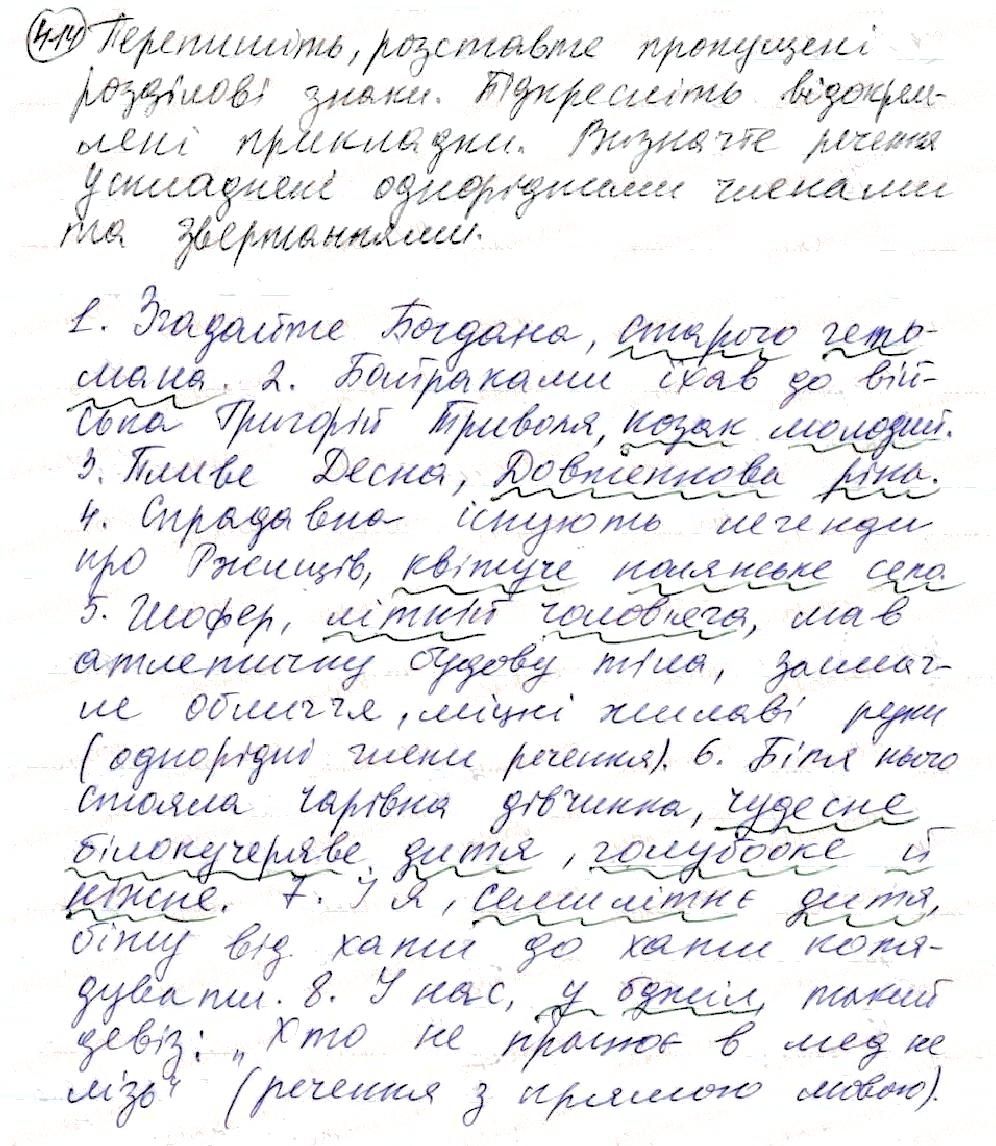 4.14 Перепишіть, розставте пропущені
розділові знаки. Підкресліть відокрем-
лені прикладки. Визначте речення
ускладнені однорідними членами
та звертаннями.
1. Згадайте Богдана, старого геть-
мана. 2. Байраками їхав до вій-
ська Григорій Триволя, козак молодий.
3. Пливе Десна, Довженкова ріка.
4. Спрадавна існують легенди
про Ржищів, квітуче полянське село.
5. Шофер, літній чолов'яга, мав
атлетичну будову тіла, засмаг-
ле обличчя, міцні жилаві руки
(однорідні члени речення). 6. Біля нього
стояла чарівна дівчинка, чудесне
білокучеряве дитя, голубооке й
ніжне. 7. І я, семилітнє дитя,
біжу від хати до хати коля-
дувати. 8. У нас, у бджіл, такий
девіз: „Хто не працює в мед не
лізь" (речення з прямою мовою).